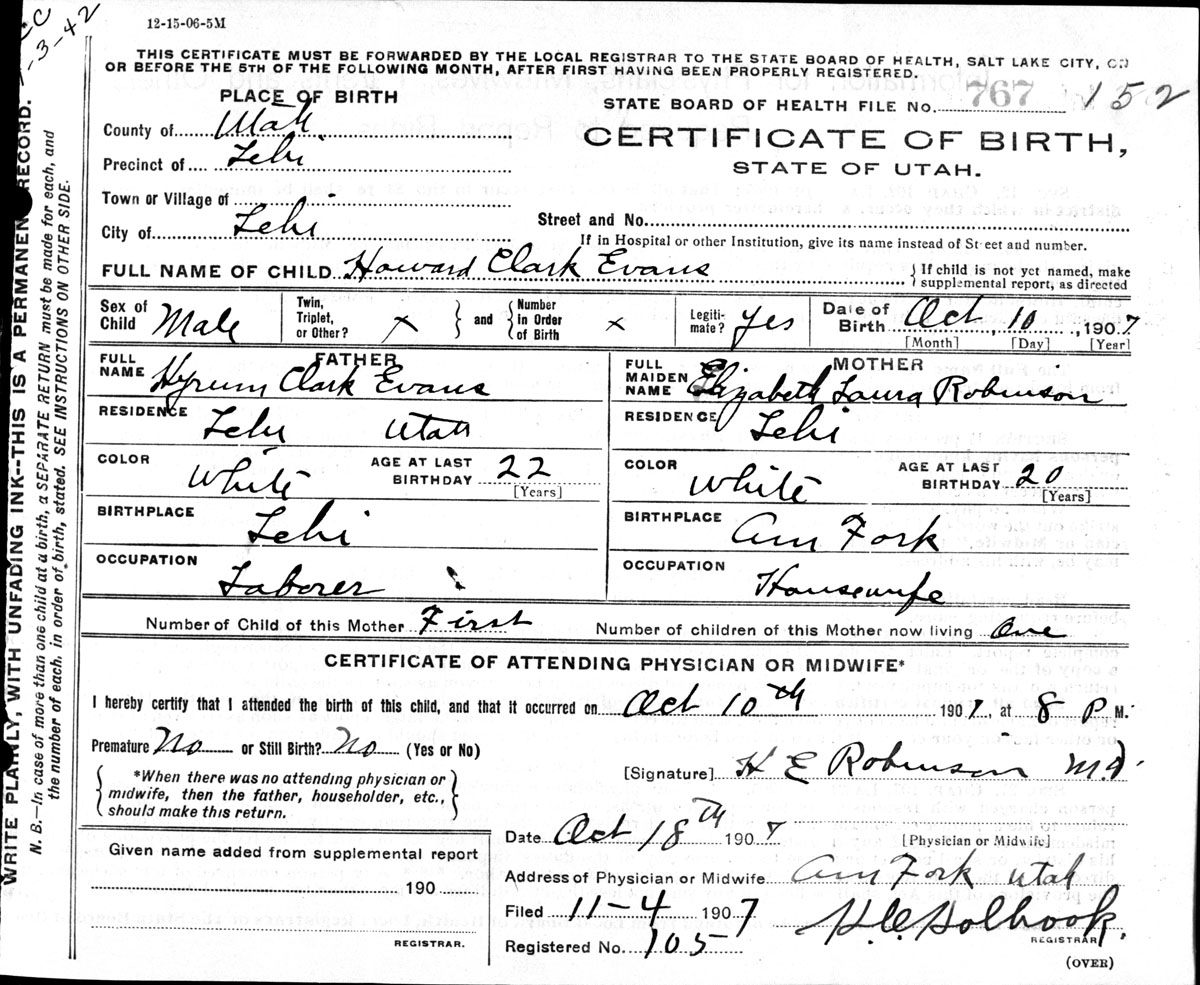 12-15-06-5M
-3-42
THIS CERTIFICATE MUST BE FORWARDED BY THE LOCAL REGISTRAR TO THE STATE BOARD OF HEALTH, SALT LAKE CITY, ON
OR BEFORE THE 5TH OF THE FOLLOWING MONTH, AFTER FIRST HAVING BEEN PROPERLY REGISTERED.
PLACE OF BIRTH
STATE BOARD OF HEALTH FILE No. 767 152
County of Utah.
CERTIFICATE OF BIRTH,
Precinct of Lehi
STATE OF UTAH.
Town or Village of
City of Lehi
Street and No.
If in Hospital or other Institution, give its name instead of Street and number.
FULL NAME OF CHILD Howard Clark Evans
If child is not yet named, make
supplemental report, as directed
Sex of Child Male
Twin, Triplet, or Other? x } and { Number in Order of Birth x
Legiti- mate? yes
Date of Birth Oct, 10, 1907
[Month] [Day] [Year]
FATHER
FULL NAME Hyrum Clark Evans
MOTHER
FULL MAIDEN NAME Elizabeth Laura Robinson
RESIDENCE Lehi Utah
RESIDENCE Lehi
COLOR White AGE AT LAST BIRTHDAY 22 [Years]
COLOR White AGE AT LAST BIRTHDAY 20 [Years]
BIRTHPLACE Lehi
BIRTHPLACE Am Fork
OCCUPATION Laborer
OCCUPATION Housewife
Number of Child of this Mother First Number of children of this Mother now living One
CERTIFICATE OF ATTENDING PHYSICIAN OR MIDWIFE*
I hereby certify that I attended the birth of this child, and that it occurred on Oct 10th 1907, at 8 P M.
Premature No or Still Birth? No (Yes or No)
*When there was no attending physician or
midwife, then the father, householder, etc.,
should make this return.
[Signature] H E Robinson M.D.
Date Oct 18th 1907 [Physician or Midwife]
Given name added from supplemental report
190
REGISTRAR.
Address of Physician or Midwife Am Fork Utah
Filed 11-4 1907
Registered No. 105
REGISTRAR
(OVER)
WRITE PLAINLY, WITH UNFADING INK--THIS IS A PERMANENT RECORD.
N. B.—In case of more than one child at a birth, a SEPARATE RETURN must be made for each, and
the number of each, in order of birth, stated. SEE INSTRUCTIONS ON OTHER SIDE.